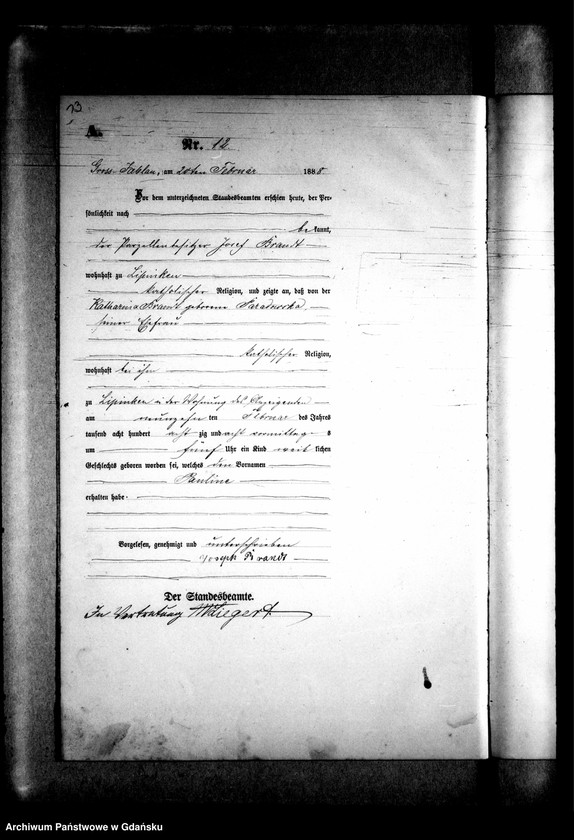 13
A.
Nr. 12.
Gross Jablau, am 20ten Februar 1888
Vor dem unterzeichneten Standesbeamten erschien heute, der Per-
sönlichkeit nach
bekannt,
der Parzellenbesitzer Josef Brandt
wohnhaft zu Lipinken
katholischer Religion, und zeigte an, daß von der
Katharina Brandt geborene
seiner Ehefrau
katholischer Religion,
wohnhaft bei ihm
zu Lipinken in der Wohnung des Anzeigenden
am neunzehn ten Februar des Jahres
tausend acht hundert acht zig und acht vormittags
um fünf Uhr ein Kind weiblichen
Geschlechts geboren worden sei, welches den Vornamen
Pauline
erhalten habe.
Vorgelesen, genehmigt und unterschrieben
Joseph Brandt
Der Standesbeamte.
In Vertretung
Archiwum Państwowe w Gdańsku